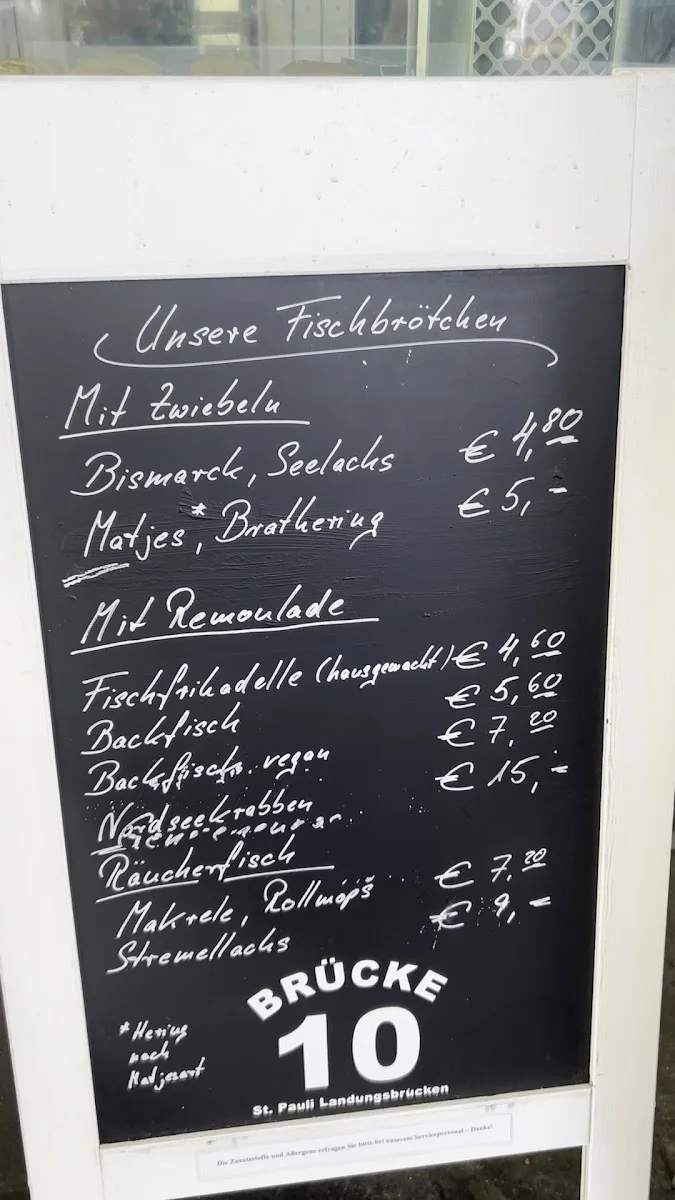 Unsere Fischbrötchen
Mit Zwiebeln
Bismarck, Seelachs € 4,80
Matjes*, Brathering € 5,-
Mit Remoulade
Fischfrikadelle (hausgemacht) € 4,60
Backfisch € 5,60
Backfisch vegan € 7,20
Nordseekrabben € 15,-
Räucherfisch
Makrele, Rollmops € 7,20
Stremellachs € 9,-
*Hering
nach
Matjesart
BRÜCKE
10
St. Pauli Landungsbrücken
Die Zusatzstoffe und Allergene erfragen Sie bitte bei unserem Servicepersonal – Danke!